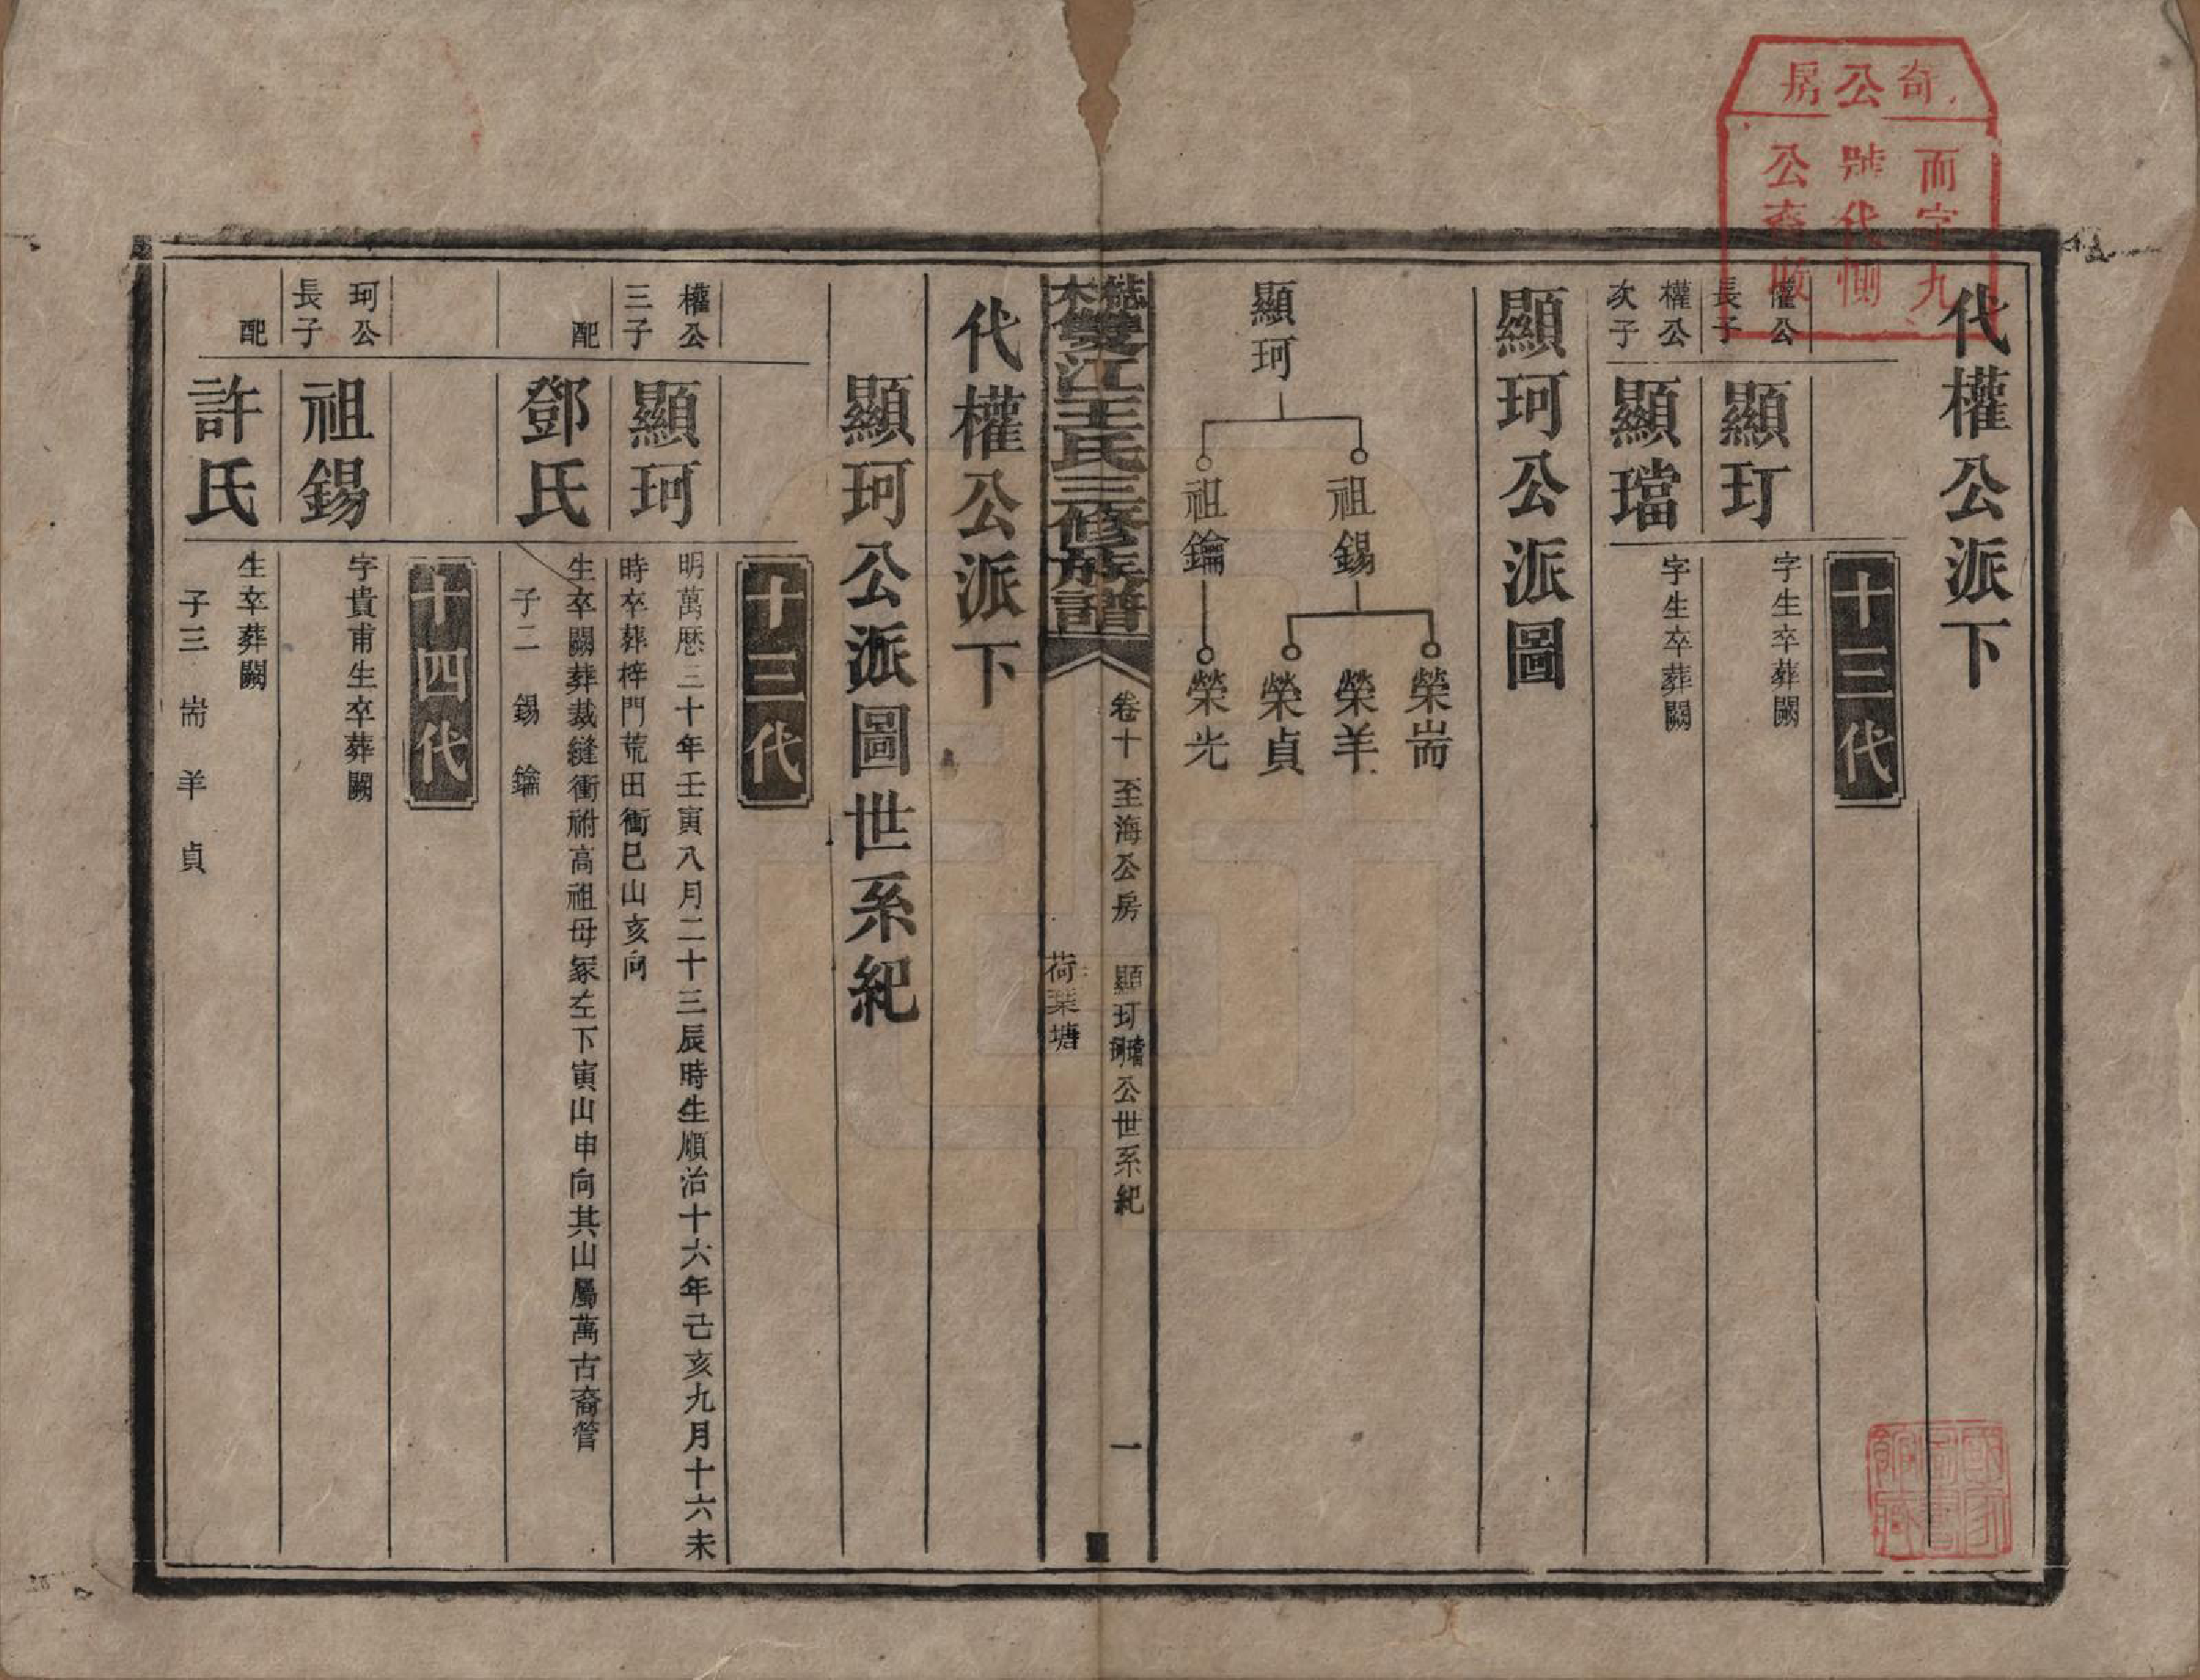 奇公房
而字九
號代惻
公裔收
代權公派下
十三代
權公長子
顯玎
字生卒葬闕
權公次子
顯璫
字生卒葬闕
顯珂公派圖
顯珂
祖錫
祖鑰
榮耑
榮羊
榮貞
榮光
雙江王氏三修族譜
卷十
至海公房
顯玎璫珂公世系紀
一
荷葉塘
代權公派下
顯珂公派圖世系紀
十三代
權公三子
顯珂
明萬厯三十年壬寅八月二十三辰時生順治十六年己亥九月十六未
時卒葬梓門荒田衝巳山亥向
配
鄧氏
生卒闕葬裁縫衝祔高祖母冢左下寅山申向其山屬萬古裔管
子二 錫 鑰
十四代
珂公長子
祖錫
字貴甫生卒葬闕
配
許氏
生卒葬闕
子三 耑 羊 貞
國家圖書館藏